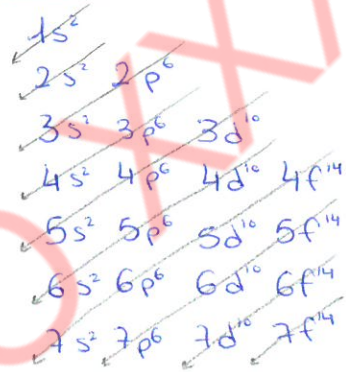 1s²
2s² 2p⁶
3s² 3p⁶ 3d¹⁰
4s² 4p⁶ 4d¹⁰ 4f¹⁴
5s² 5p⁶ 5d¹⁰ 5f¹⁴
6s² 6p⁶ 6d¹⁰ 6f¹⁴
7s² 7p⁶ 7d¹⁰ 7f¹⁴